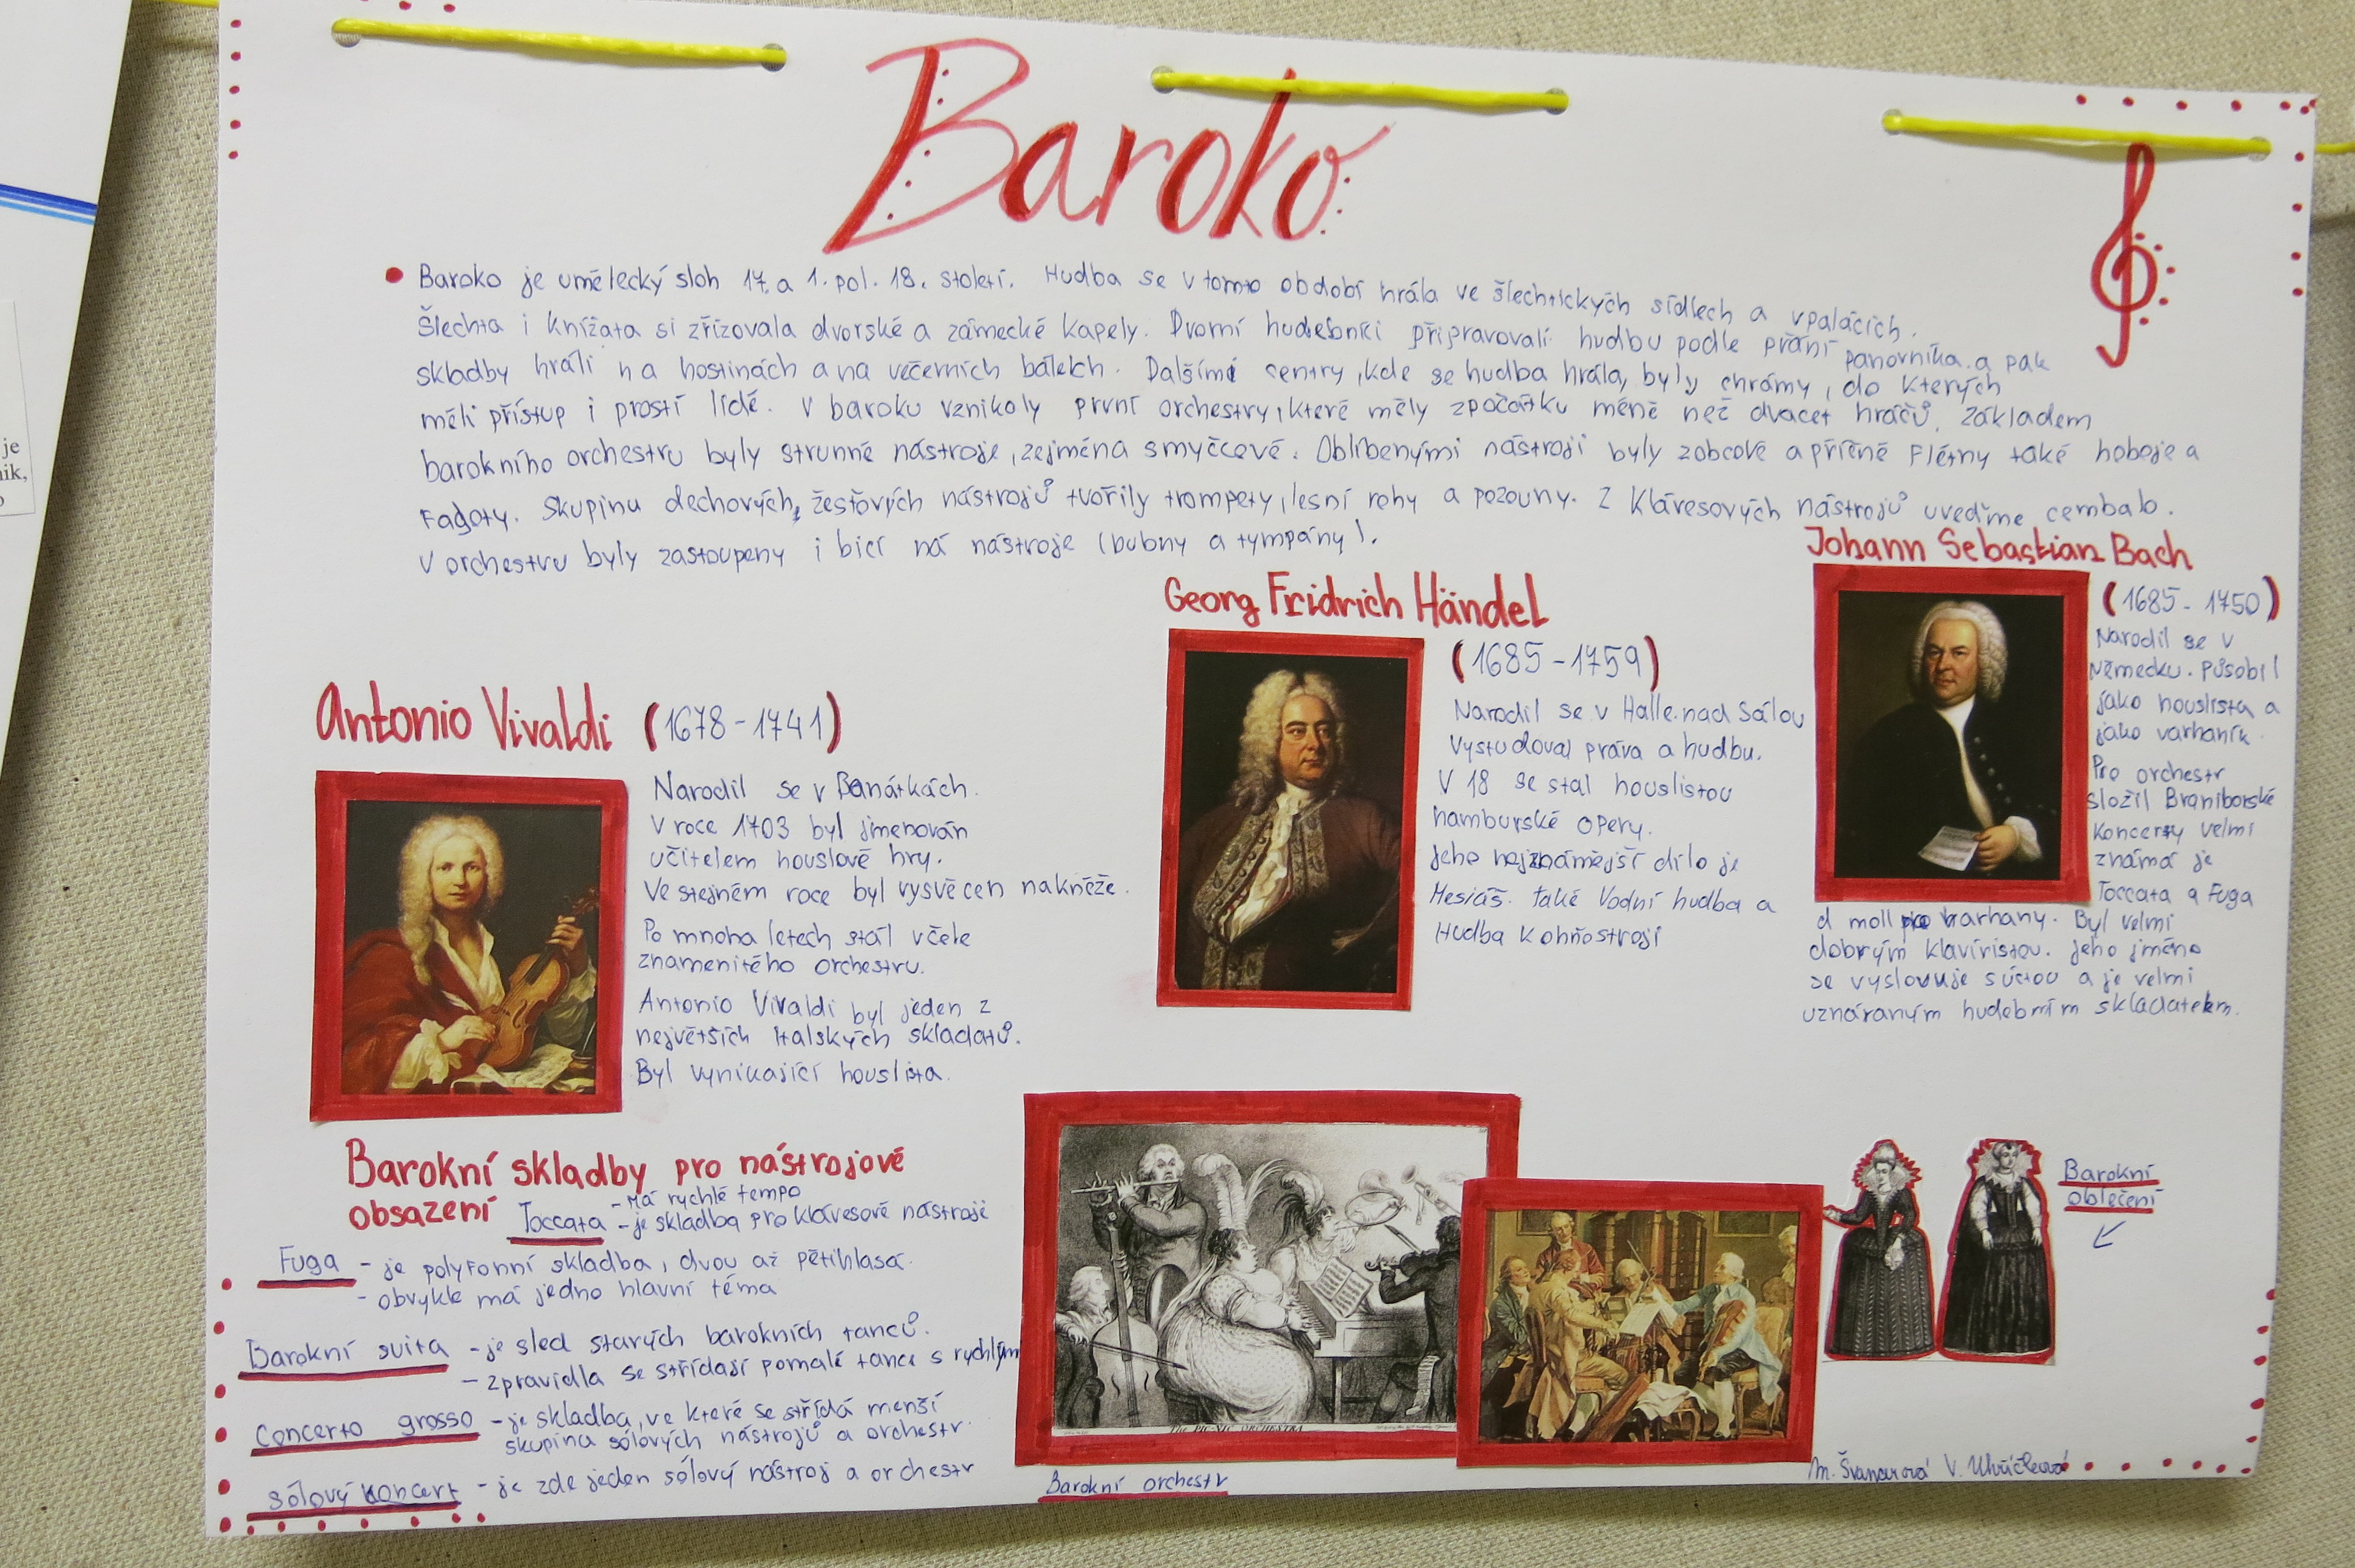 Baroko
Baroko je umělecký sloh 17. a 1. pol. 18. století. Hudba se v tomto období hrála ve šlechtických sídlech a v palácích.
Šlechta i knížata si zřizovala dvorské a zámecké kapely. Dvorní hudebníci připravovali hudbu podle přání panovníka a pak
skladby hráli na hostinách a na večerních bálech. Dalšími centry, kde se hudba hrála, byly chrámy, do kterých
měli přístup i prostí lidé. V baroku vznikoly první orchestry, které měly zpočátku méně než dvacet hráčů. Základem
barokního orchestru byly strunné nástroje, zejména smyčcové. Oblíbenými nástroji byly zobcové a příčné flétny také hoboje a
fagoty. Skupinu dechových, žesťových nástrojů tvořily trompety, lesní rohy a pozouny. Z klávesových nástrojů uveďme cembalo.
V orchestru byly zastoupeny i bicí ná nástroje (bubny a tympány).
Antonio Vivaldi (1678-1741)
Narodil se v Benátkách.
V roce 1703 byl jmenován
učitelem houslové hry.
Ve stejném roce byl vysvěcen na kněze.
Po mnoha letech stál v čele
znamenitého orchestru.
Antonio Vivaldi byl jeden z
největších italských skladatů.
Byl vynikající houslista.
Georg Fridrich Händel
(1685-1759)
Narodil se v Halle nad Sálou
Vystudoval práva a hudbu.
V 18 se stal houslistou
hamburské opery.
Jeho nejznámější dílo je
Mesiáš. také Vodní hudba a
Hudba k ohňostroji
Johann Sebastian Bach
(1685-1750)
Narodil se v
Německu. Působil
jako houslista a
jako varhaník.
Pro orchestr
složil Braniborské
koncerty velmi
známá je
Toccata a Fuga
d moll pro varhany. Byl velmi
dobrým klavíristou. Jeho jméno
se vyslovuje s úctou a je velmi
uznáraným hudebním skladatelem.
Barokní skladby pro nástrojové
obsazení
Toccata - Má rychlé tempo
- je skladba pro klávesové nástroje
Fuga - je polyfonní skladba, dvou až pětihlasá.
- obvykle má jedno hlavní téma
Barokní suita - je sled starých barokních tanců.
- zpravidla se střídají pomalé tance s rychlými
Concerto grosso - je skladba, ve které se střídá menší
skupina sólových nástrojů a orchestr.
sólový koncert - je zde jeden sólový nástroj a orchestr
THE PIC-NIC ORCHESTRA
Barokní orchestr
Barokní
oblečení
je